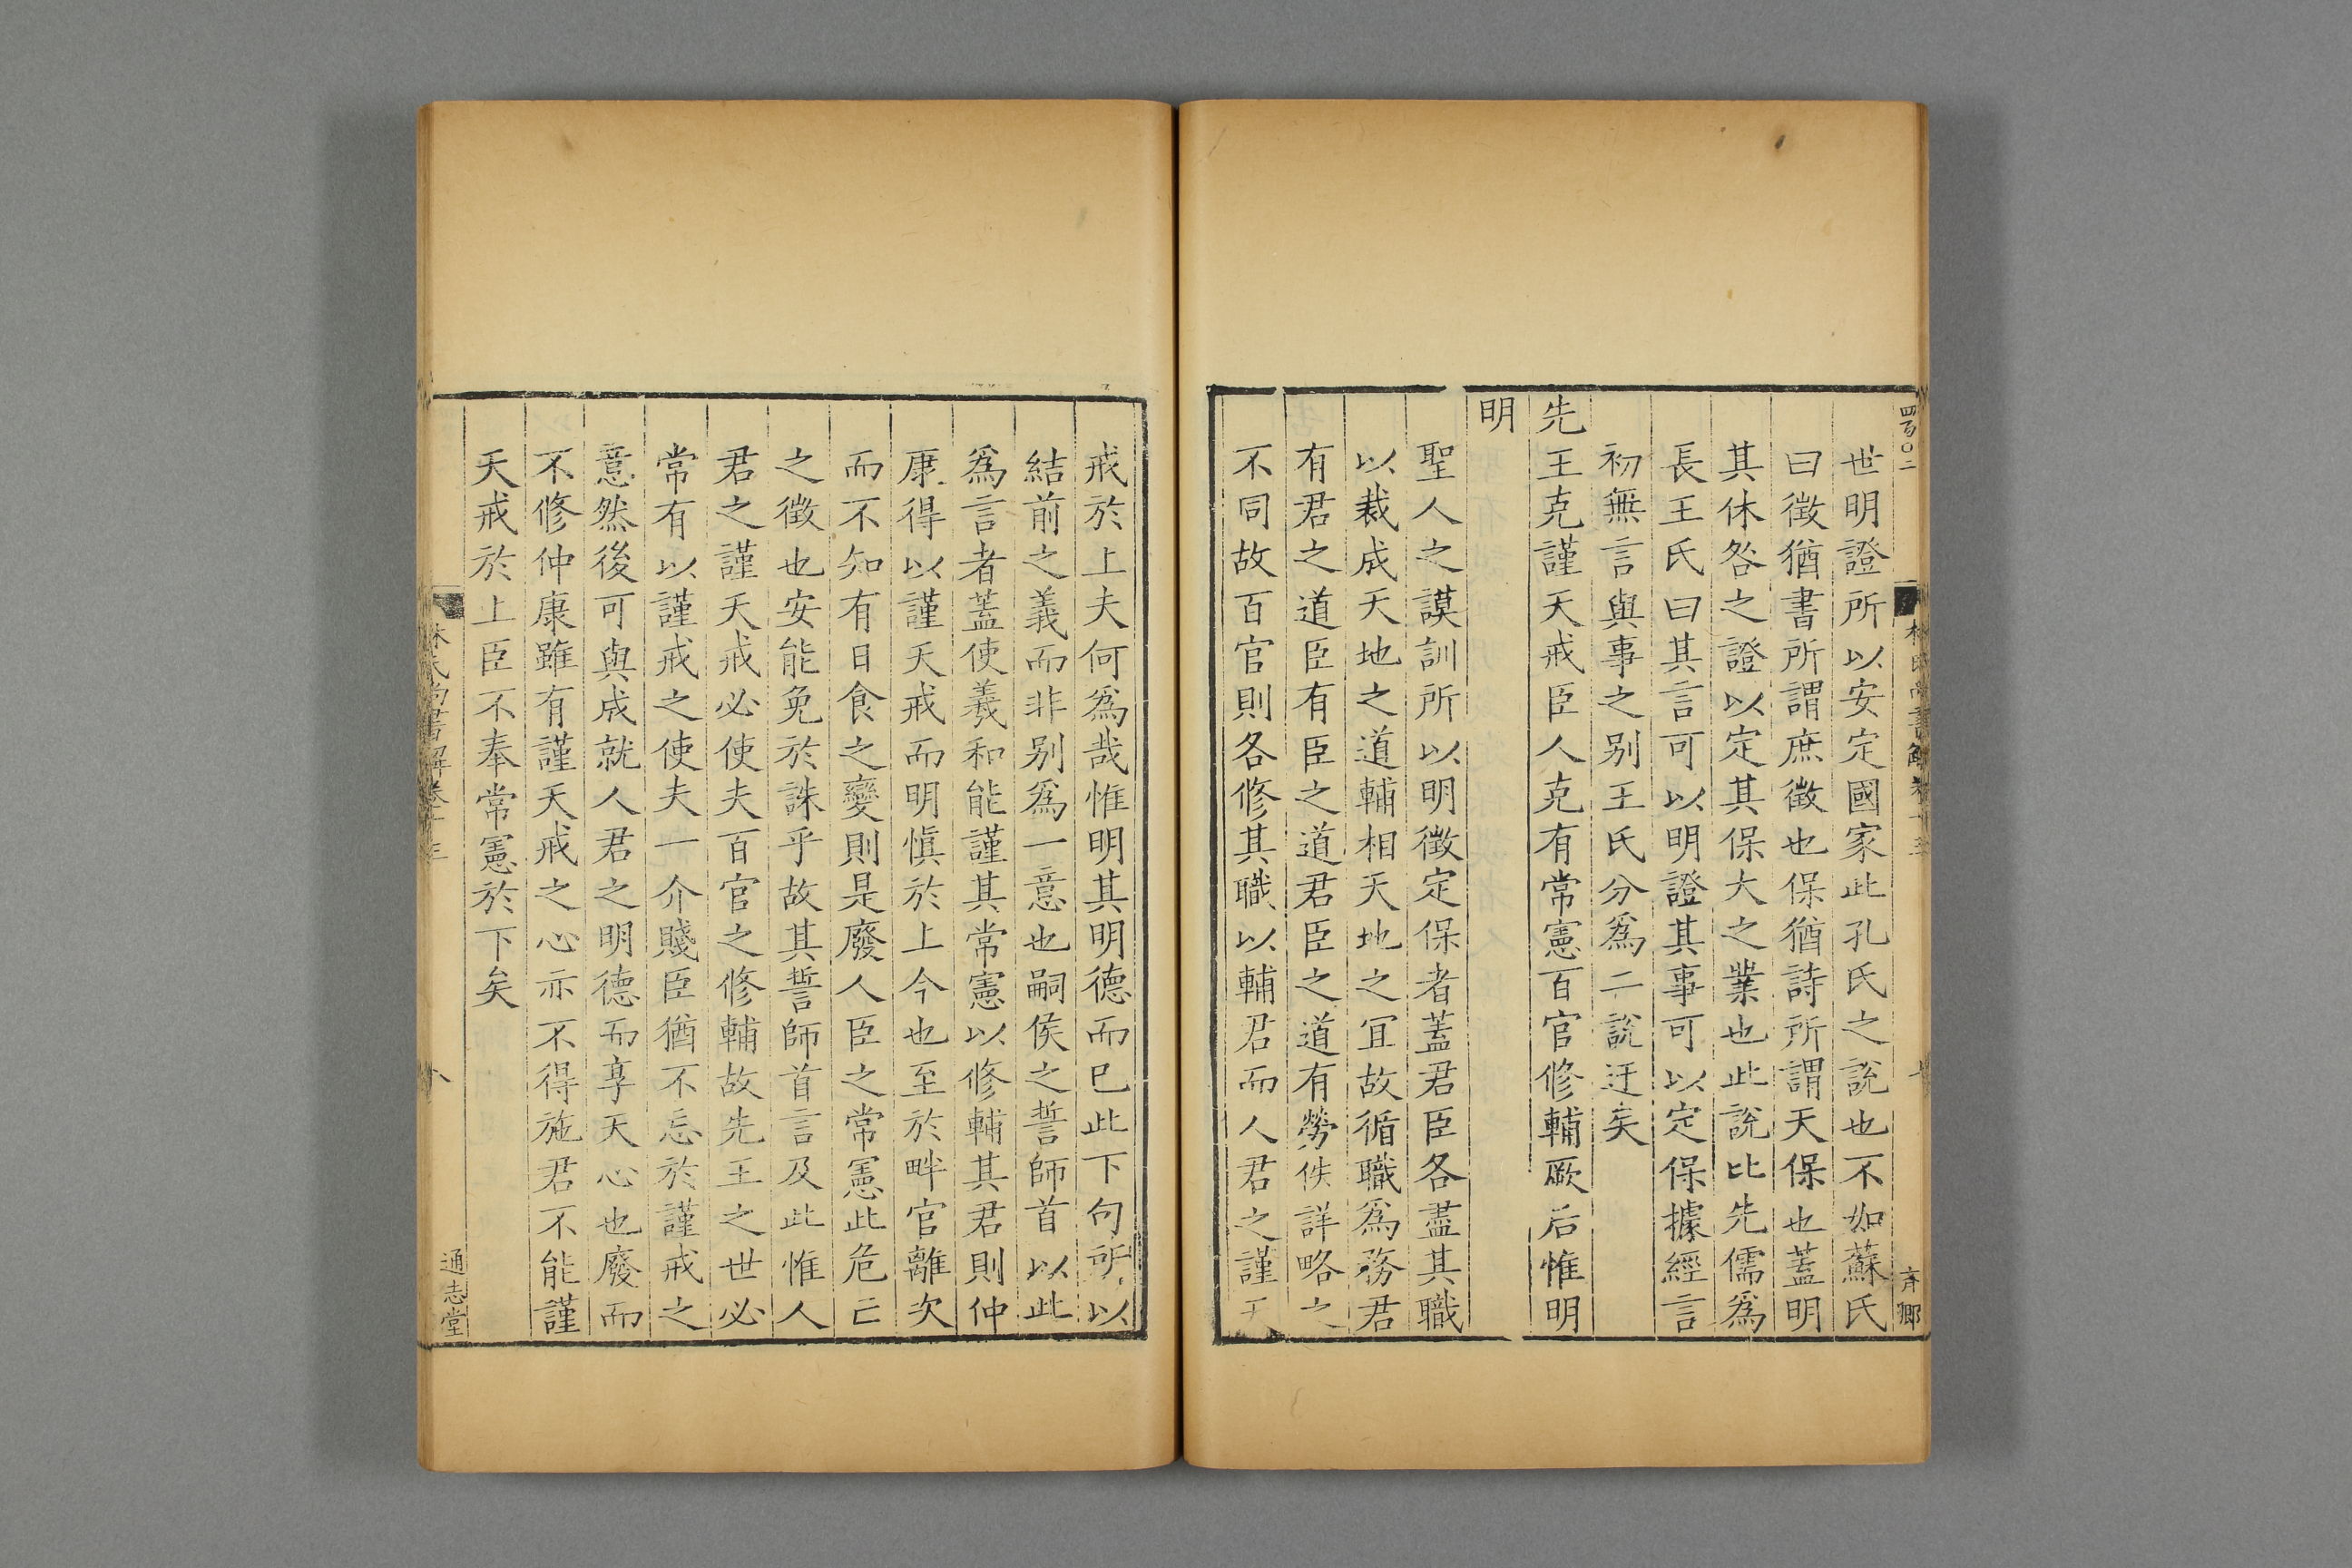 四百〇二
世明證所以安定國家此孔氏之說也不如蘇氏
曰徵猶書所謂庶徵也保猶詩所謂天保也蓋明
其休咎之證以定其保大之業也此說比先儒為
長王氏曰其言可以明證其事可以定保據經言
初無言與事之別王氏分為二說迂矣
先王克謹天戒臣人克有常憲百官修輔厥后惟明
明
聖人之謨訓所以明徵定保者蓋君臣各盡其職
以裁成天地之道輔相天地之宜故循職為務君
有君之道臣有臣之道君臣之道有勞佚詳略之
不同故百官則各修其職以輔君而人君之謹天
戒於上夫何為哉惟明其明德而已此下句所以
結前之義而非別為一意也嗣侯之誓師首以此
為言者蓋使羲和能謹其常憲以修輔其君則仲
康得以謹天戒而明慎於上今也至於畔官離次
而不知有日食之變則是廢人臣之常憲此危亡
之徵也安能免於誅乎故其誓師首言及此惟人
君之謹天戒必使夫百官之修輔故先王之世必
常有以謹戒之使夫一介賤臣猶不忘於謹戒之
意然後可與成就人君之明德而享天心也廢而
不修仲康雖有謹天戒之心亦不得施君不能謹
天戒於上臣不奉常憲於下矣
林氏尚書解卷十三
八
通志堂